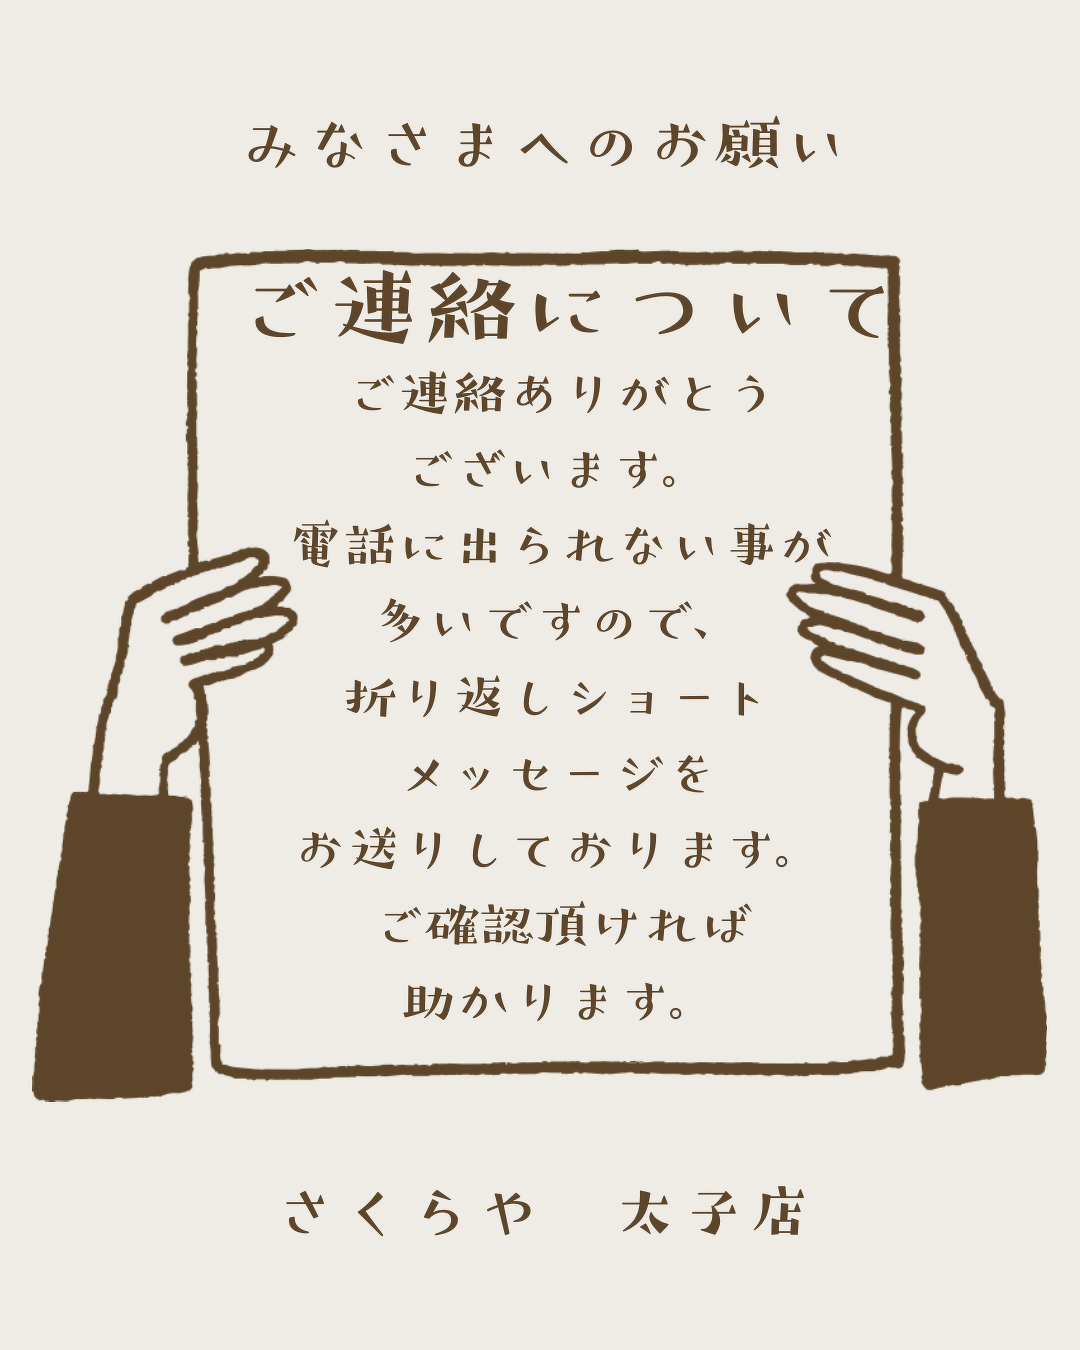 みなさまへのお願い
ご連絡について
ご連絡ありがとう
ございます。
電話に出られない事が
多いですので、
折り返しショート
メッセージを
お送りしております。
ご確認頂ければ
助かります。
さくらや　太子店